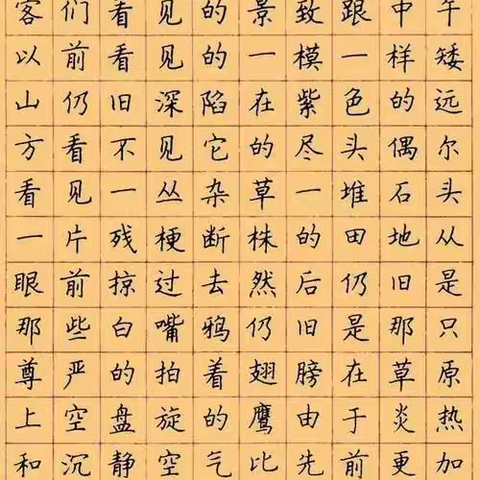 客们看见的景致跟中午
以前看见的一模一样矮
山仍旧深陷在紫色的远
方看不见它的尽头偶尔
看见一丛杂草一堆石头
一片残梗断株的田地从
眼前掠过去然后仍旧是
那些白嘴鸦仍旧是那只
尊严的拍着翅膀在草原
上空盘旋的鹰由于炎热
和沉静空气比先前更加